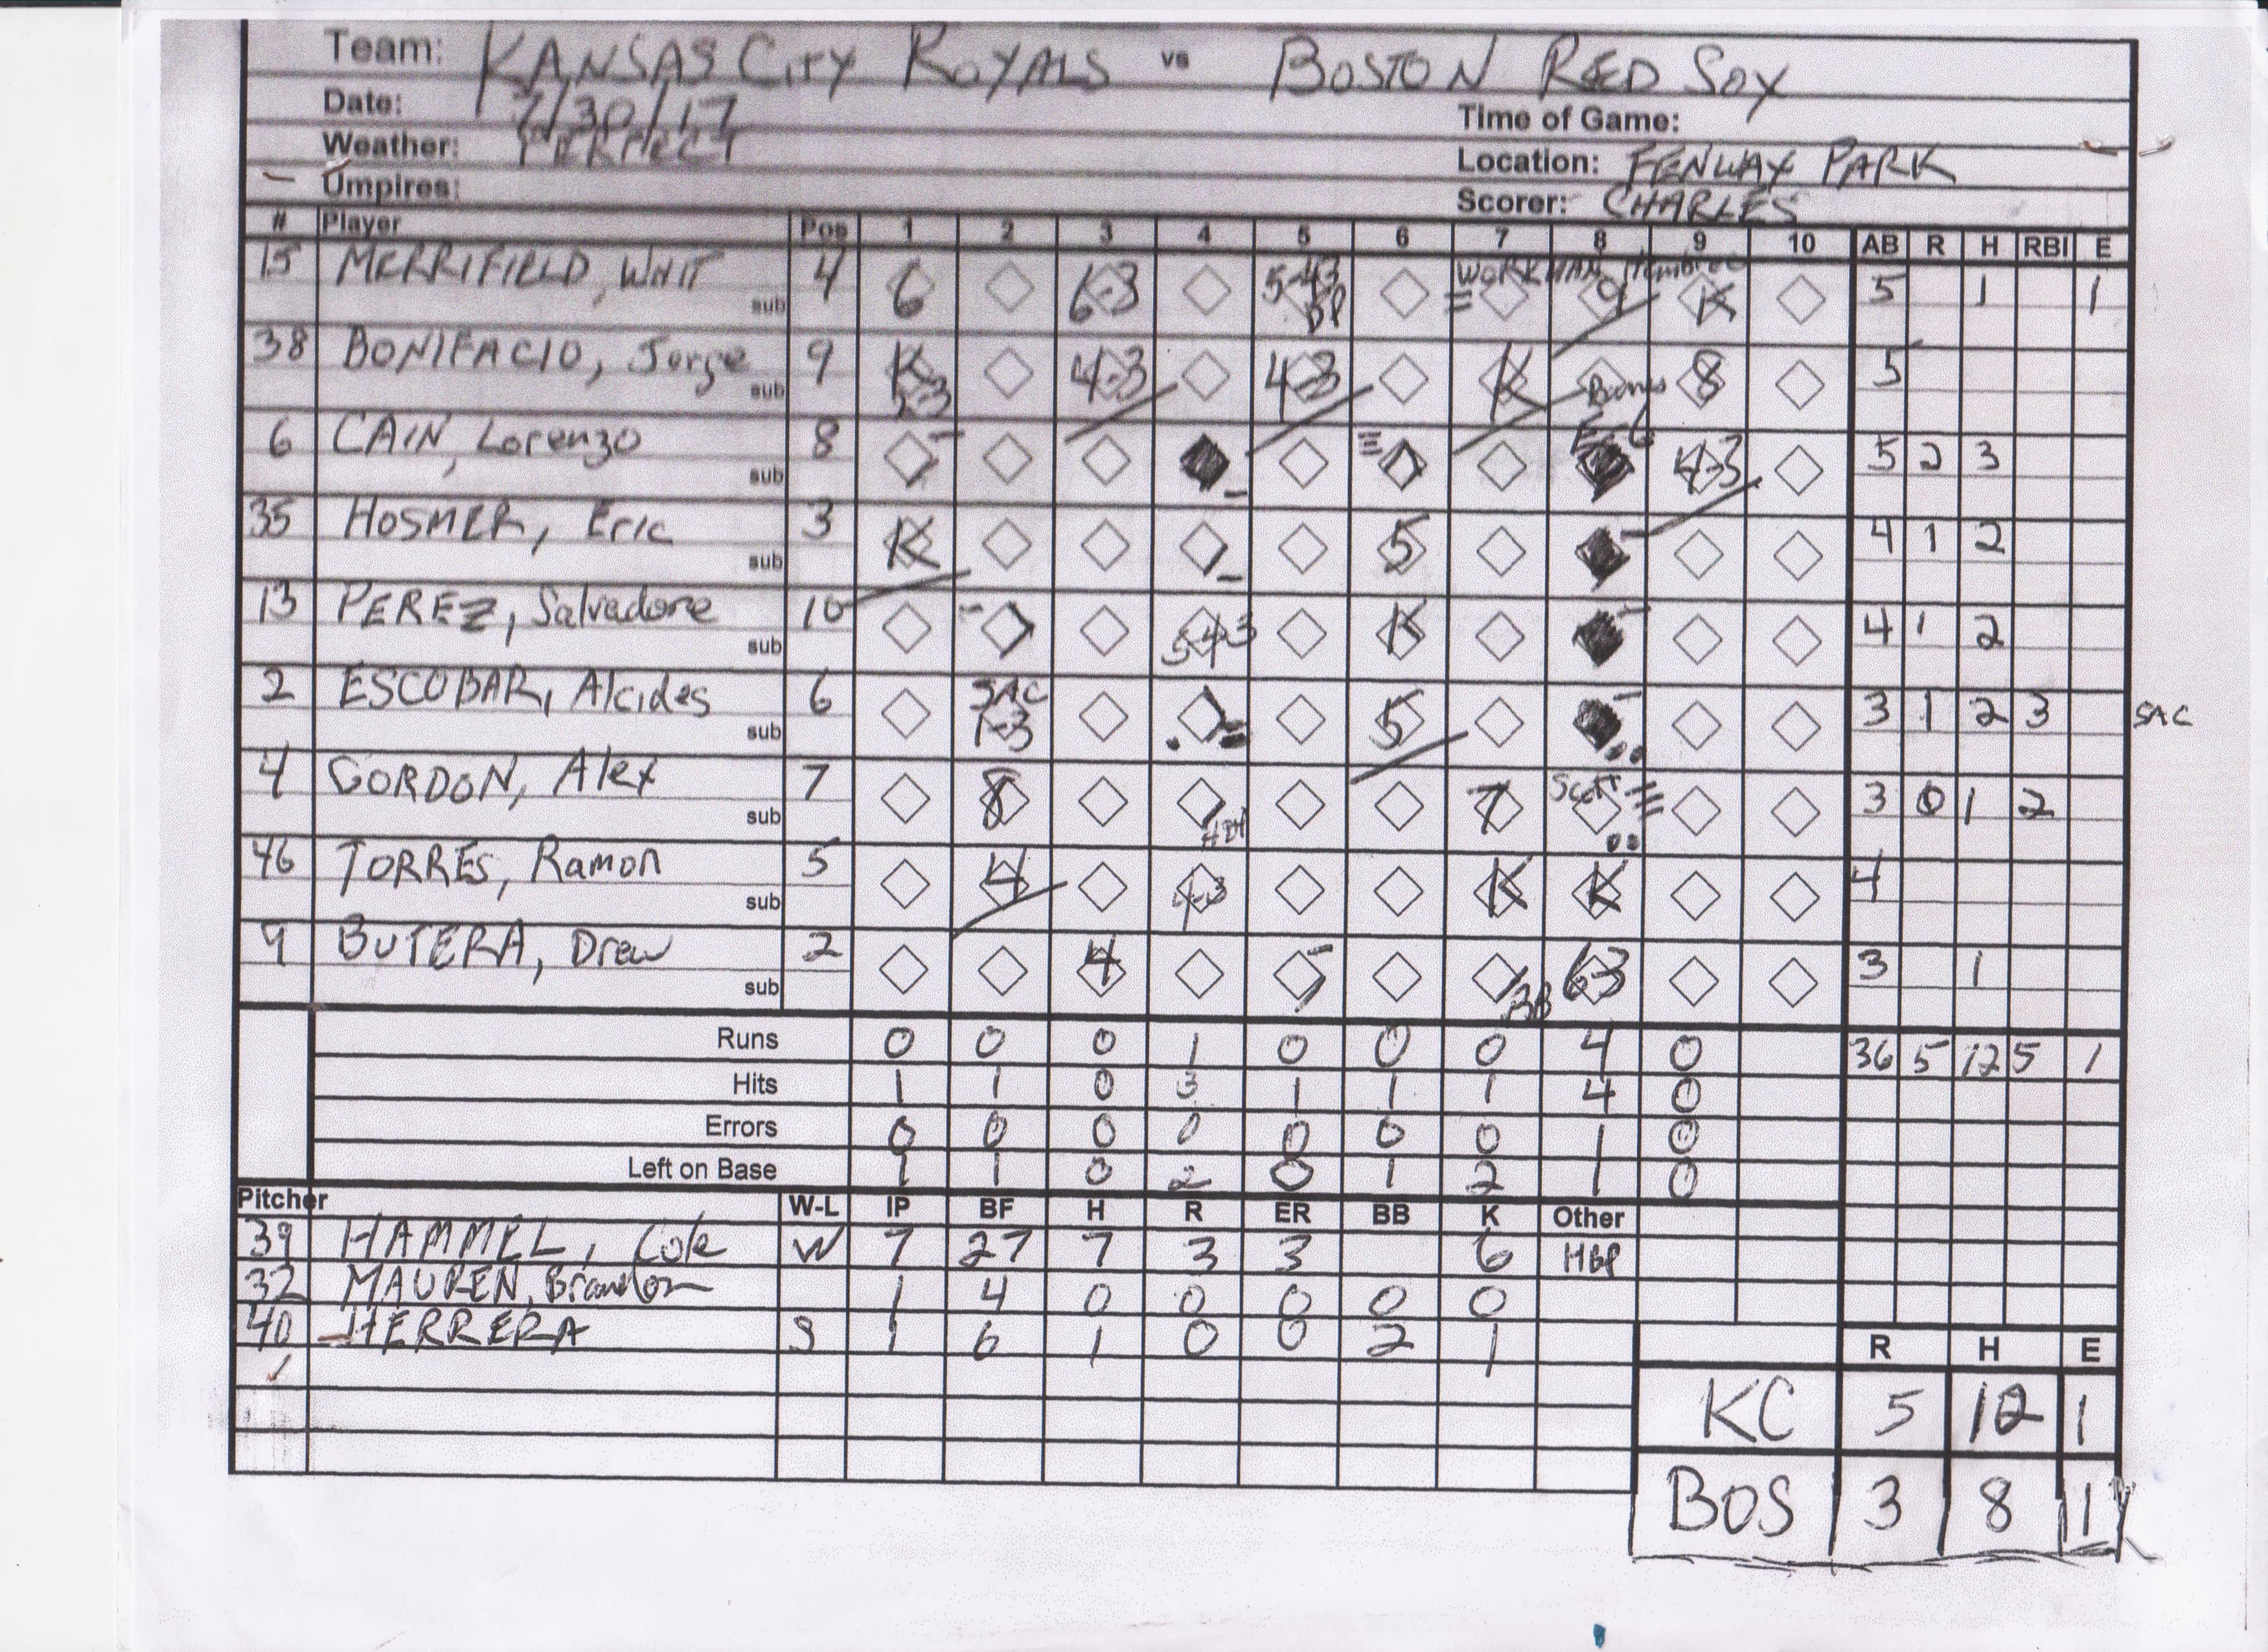 Team: KANSAS CITY ROYALS vs BOSTON RED SOX
Date: 7/30/17 Time of Game:
Weather: PERFECT Location: FENWAY PARK
Umpires: Scorer: CHARLES
# Player Pos 1 2 3 4 5 6 7 8 9 10 AB R H RBI E
WORKMAN, Hembree
15 MERRIFIELD, WHIT 4 6 6-3 5-43 DP 9 K 5 1 1
sub
38 BONIFACIO, Jorge 9 K 2-3 4-3 4-3 K Barnes 8 5
sub
6 CAIN, Lorenzo 8 E-6 4-3 5 2 3
sub
35 HOSMER, Eric 3 K 5 4 1 2
sub
13 PEREZ, Salvadore 10 543 K 4 1 2
sub
2 ESCOBAR, Alcides 6 SAC 1-3 5 3 1 2 3 SAC
sub
4 GORDON, Alex 7 8 HBP 7 Scott 3 0 1 2
sub
46 TORRES, Ramon 5 4 4-3 K K 4
sub
9 BUTERA, Drew 2 4 BB 63 3 1
sub
Runs 0 0 0 1 0 0 0 4 0 36 5 12 5 1
Hits 1 1 0 3 1 1 1 4 0
Errors 0 0 0 0 0 0 0 1 0
Left on Base 1 1 0 2 0 1 2 1 0
Pitcher W-L IP BF H R ER BB K Other
39 HAMMEL, Cole W 7 27 7 3 3 6 HBP
32 MAUREN, Brandon 1 4 0 0 0 0 0
40 HERRERA S 1 6 1 0 0 2 1
R H E
KC 5 12 1
BOS 3 8 1